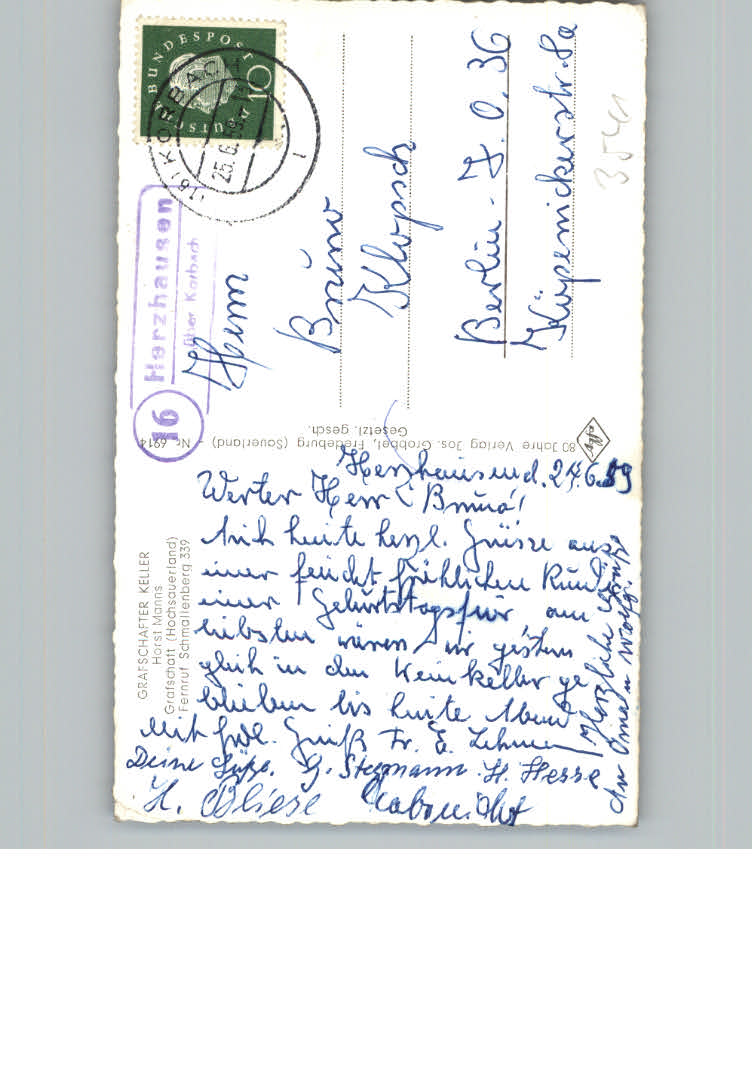 DEUTSCHE BUNDESPOST
10
(16) KORBACH
25.6.59
1
16
Herzhausen
über Korbach
Herrn
Bruno
Klopsch
Berlin - S.O. 36
Köpenickerstr. 8a
3541
80 Jahre Verlag Jos. Grobbel, Fredeburg (Sauerland) - Nr. 6914
Gesetzl. gesch.
afbr
GRAFSCHAFTER KELLER
Horst Manns
Grafschaft (Hochsauerland)
Fernruf Schmallenberg 339
Herzhausen d. 24.6.59
Werter Herr Bruno!
Auch heute herzl. Grüsse aus
einer feucht fröhlichen Runde
einer Geburtstagsfeier am
liebsten wären wir gestern
gleich in dem Weinkeller ge
blieben bis heute Abend
Mit frdl. Gruß Fr. E. Lehmann
Deine G. Stegmann. H. Hesse
H. Bliese
Herzliche Grüße
Oma u